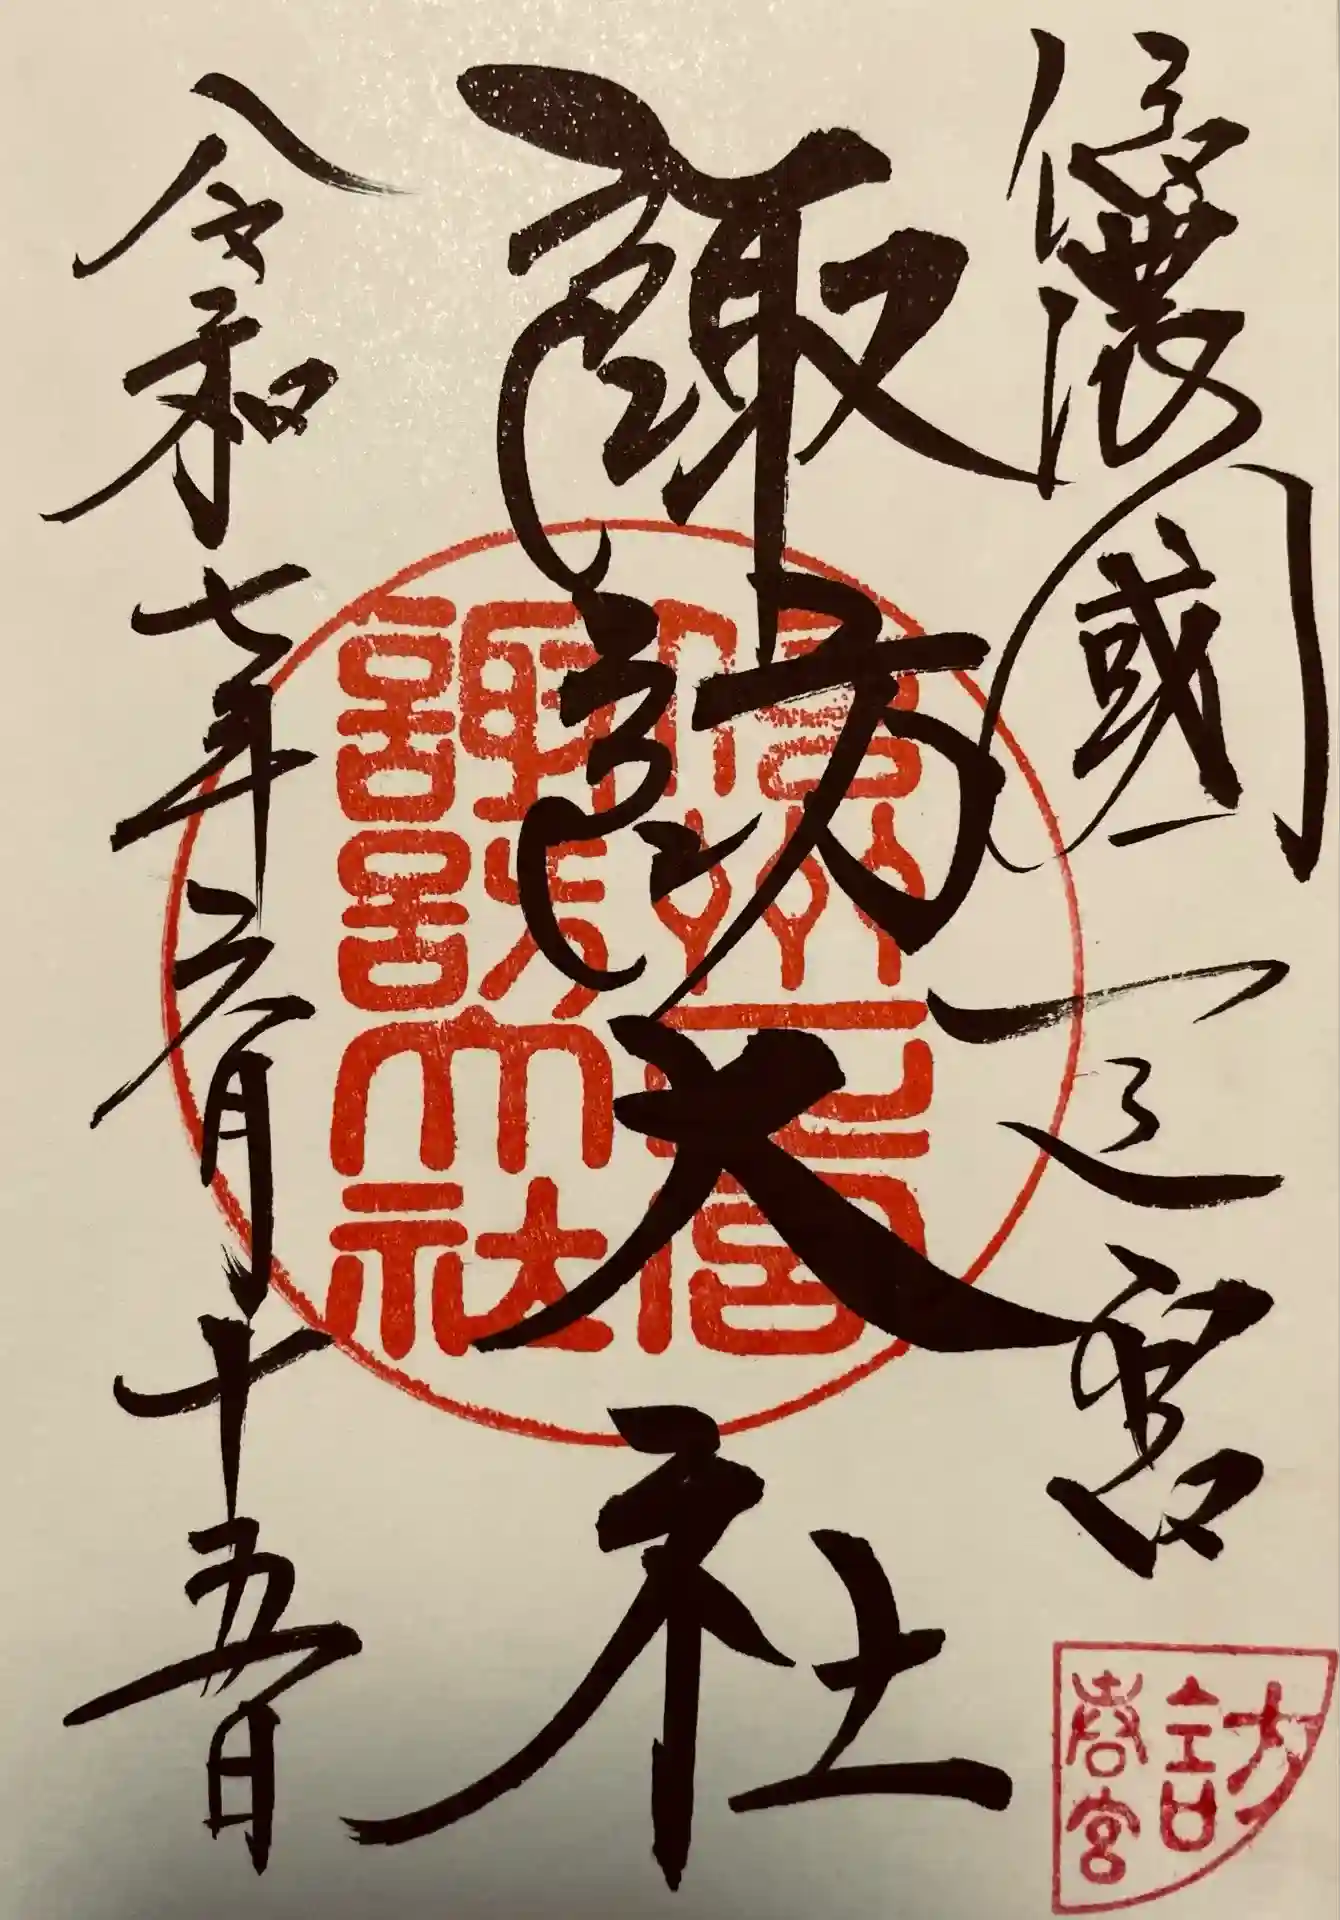 信濃國一之宮
諏訪大社
令和七年六月十五日
信州一之宮
諏訪大社
訪
春宮